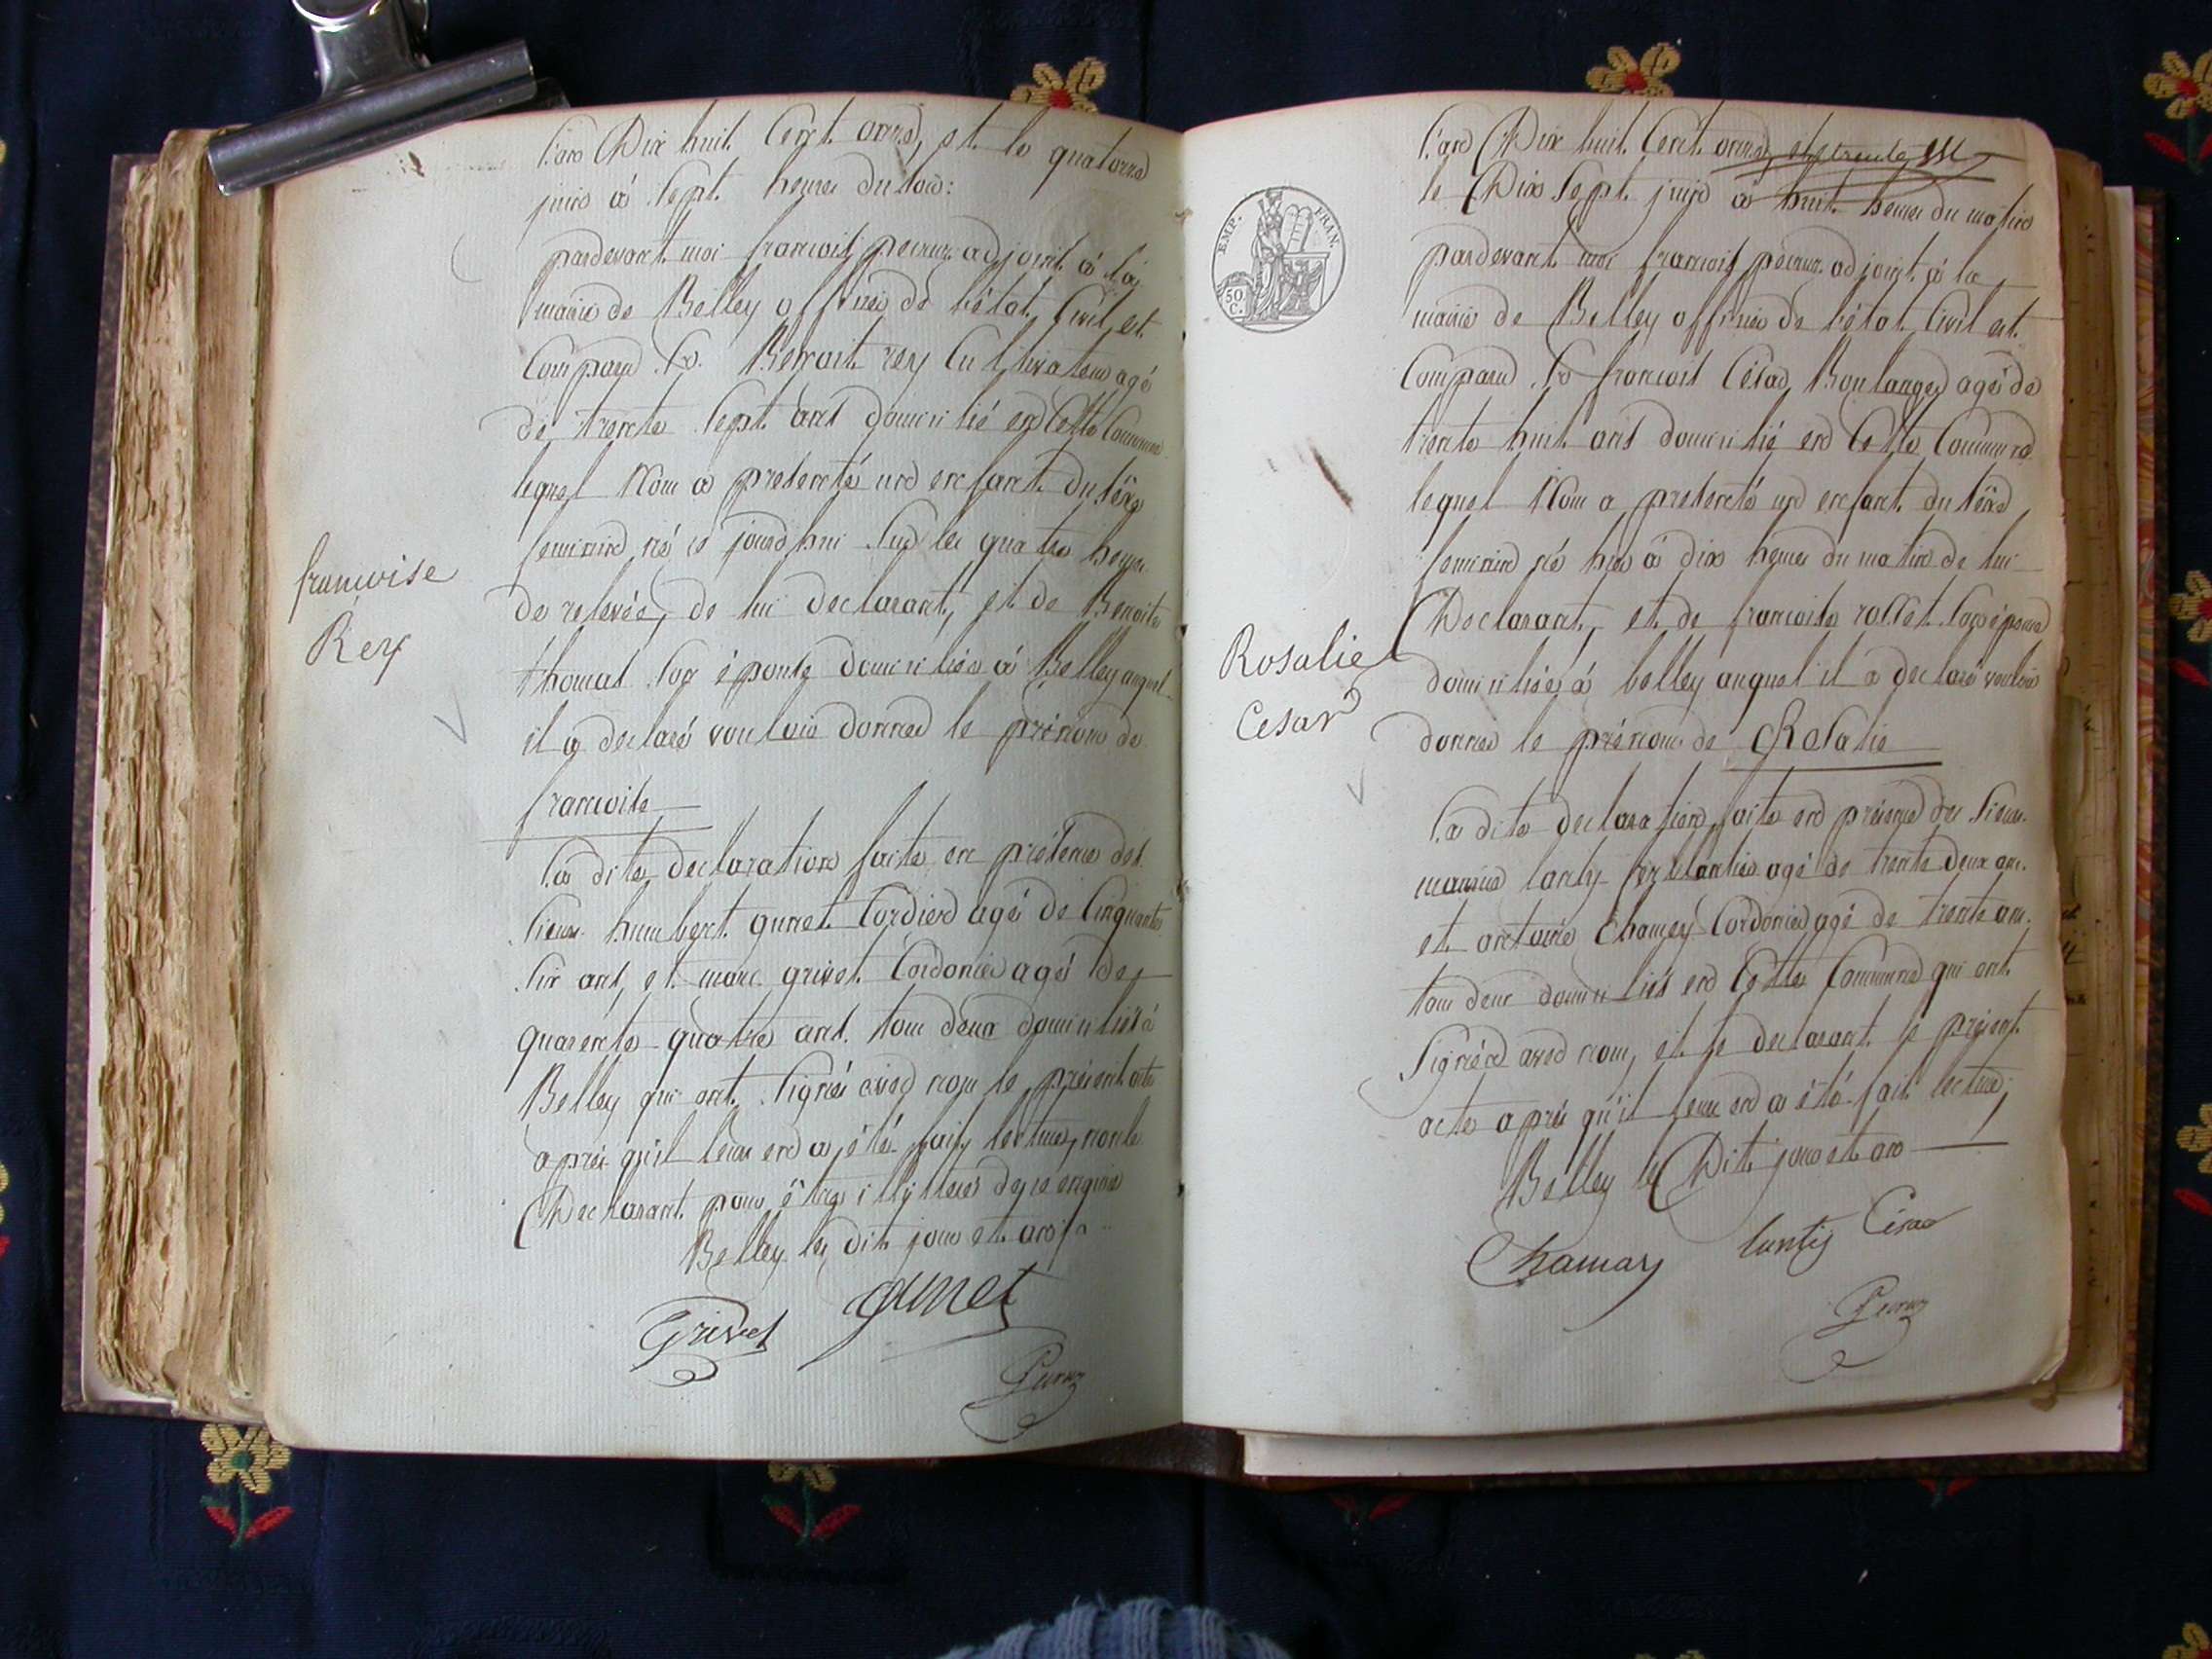 L'an Dix huit Cent onze, et le quatorze
juin à Sept heures du soir:
pardevant moi françois pecuur adjoint à la
mairie de Belley officier de l'état Civil, est
Comparu Sr. Benoit rey Cultivateur agé
de trente Sept ans domicilié en Cette Commune
lequel Nous a presenté un enfant du sexe
feminin né ce jourd'hui Sur les quatre heures
de relevée, de lui declarant, et de Benoite
thomas Son épouse domiciliés à Belley auquel
il a declaré vouloir donner le prénom de
francoise
La dite declaration faite en présence des
Sieurs humbert gunet Cordier agé de Cinquante
Six ans, et marc grivet Cordonier agé de
quarente quatre ans tous deux domiciliés à
Belley qui ont Signés avec nous le présent acte
après qu'il leur en a été fait lecture, non le
Declarant pour être illyteré de ce enquis
Belley les dit jour et an
Grivet gunet
francoise
Rey
L'an Dix huit Cent onze, et
le Dix Sept juin à huit heures du matin
pardevant moi françois adjoint à la
mairie de Belley officier de l'état Civil est
Comparu Sr françois César, Boulanger agé de
trente huit ans domicilié en Cette Commune
lequel Nous a presenté un enfant du sexe
feminin né hier à dix heures du matin de lui
Declarant, et de francoise rollet Son épouse
domiciliés à belley auquel il a declaré vouloir
donner le prénom de Rosalie
La dite declaration faite en présence des Sieurs
lanty ferblantier agé de trente deux ans
et antoine Chamey Cordonier agé de trente ans
tous deux domiciliés en Cette Commune qui ont
Signés avec nous, et le declarant le présent
acte après qu'il leur en a été fait lecture
Belley le Dit jour et an
Chamay lantij César
Rosalie
Cesar
EMP. FRAN.
50
C.